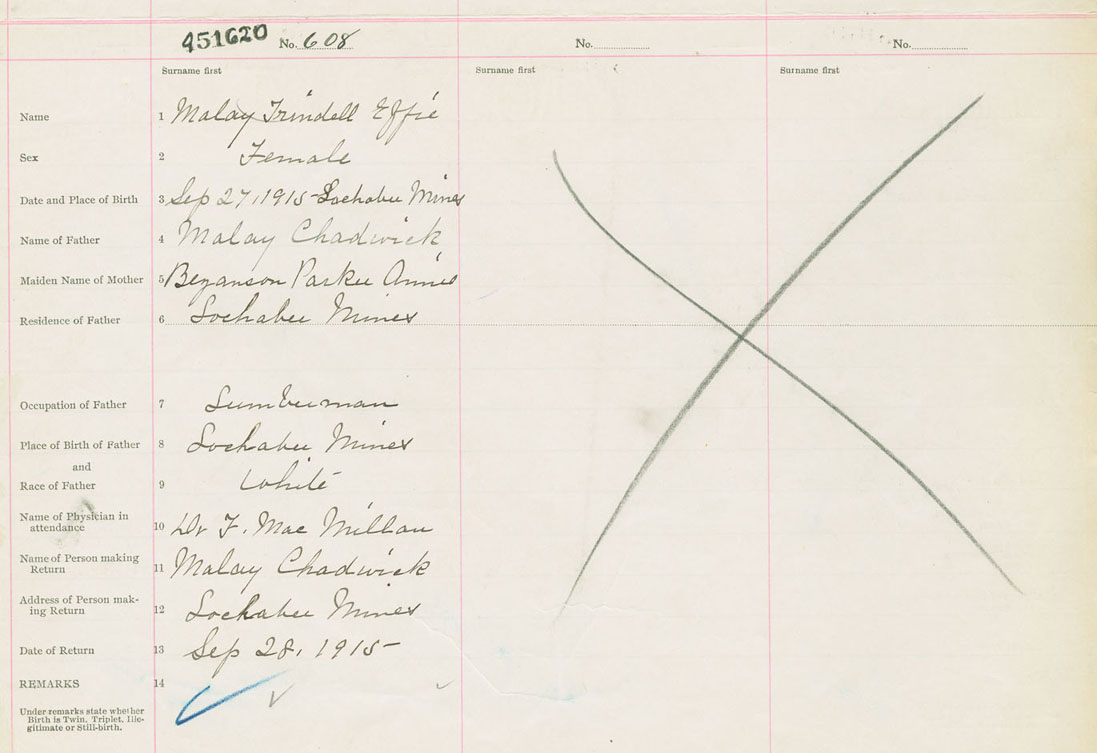 451620 No. 608 No. No.
Surname first Surname first Surname first
Name 1 Malay Trindell Effie
Sex 2 Female
Date and Place of Birth 3 Sep 27, 1915 - Lochaber Mines
Name of Father 4 Malay Chadwick
Maiden Name of Mother 5 Bezanson Parker Annie
Residence of Father 6 Lochaber Mines
Occupation of Father 7 Lumberman
Place of Birth of Father 8 Lochaber Mines
and
Race of Father 9 White
Name of Physician in
attendance 10 Dr F. Mac Millan
Name of Person making
Return 11 Malay Chadwick
Address of Person mak-
ing Return 12 Lochaber Mines
Date of Return 13 Sep 28, 1915 -
REMARKS 14
Under remarks state whether
Birth is Twin, Triplet, Ille-
gitimate or Still-birth.